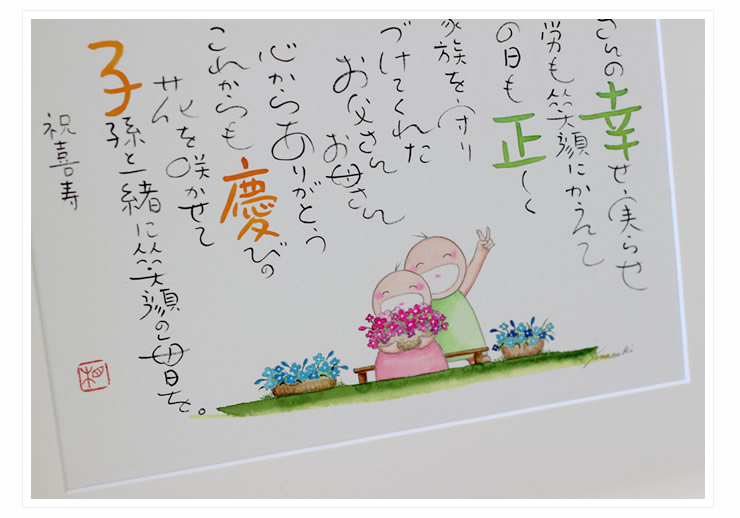 さんの幸せ、実らせ
労も笑顔にかえて
の日も正しく
家族を守り
づけてくれた
お父さん
お母さん
心からありがとう
これからも慶びの
花を咲かせて
子孫と一緒に笑顔の毎日を。
祝喜寿